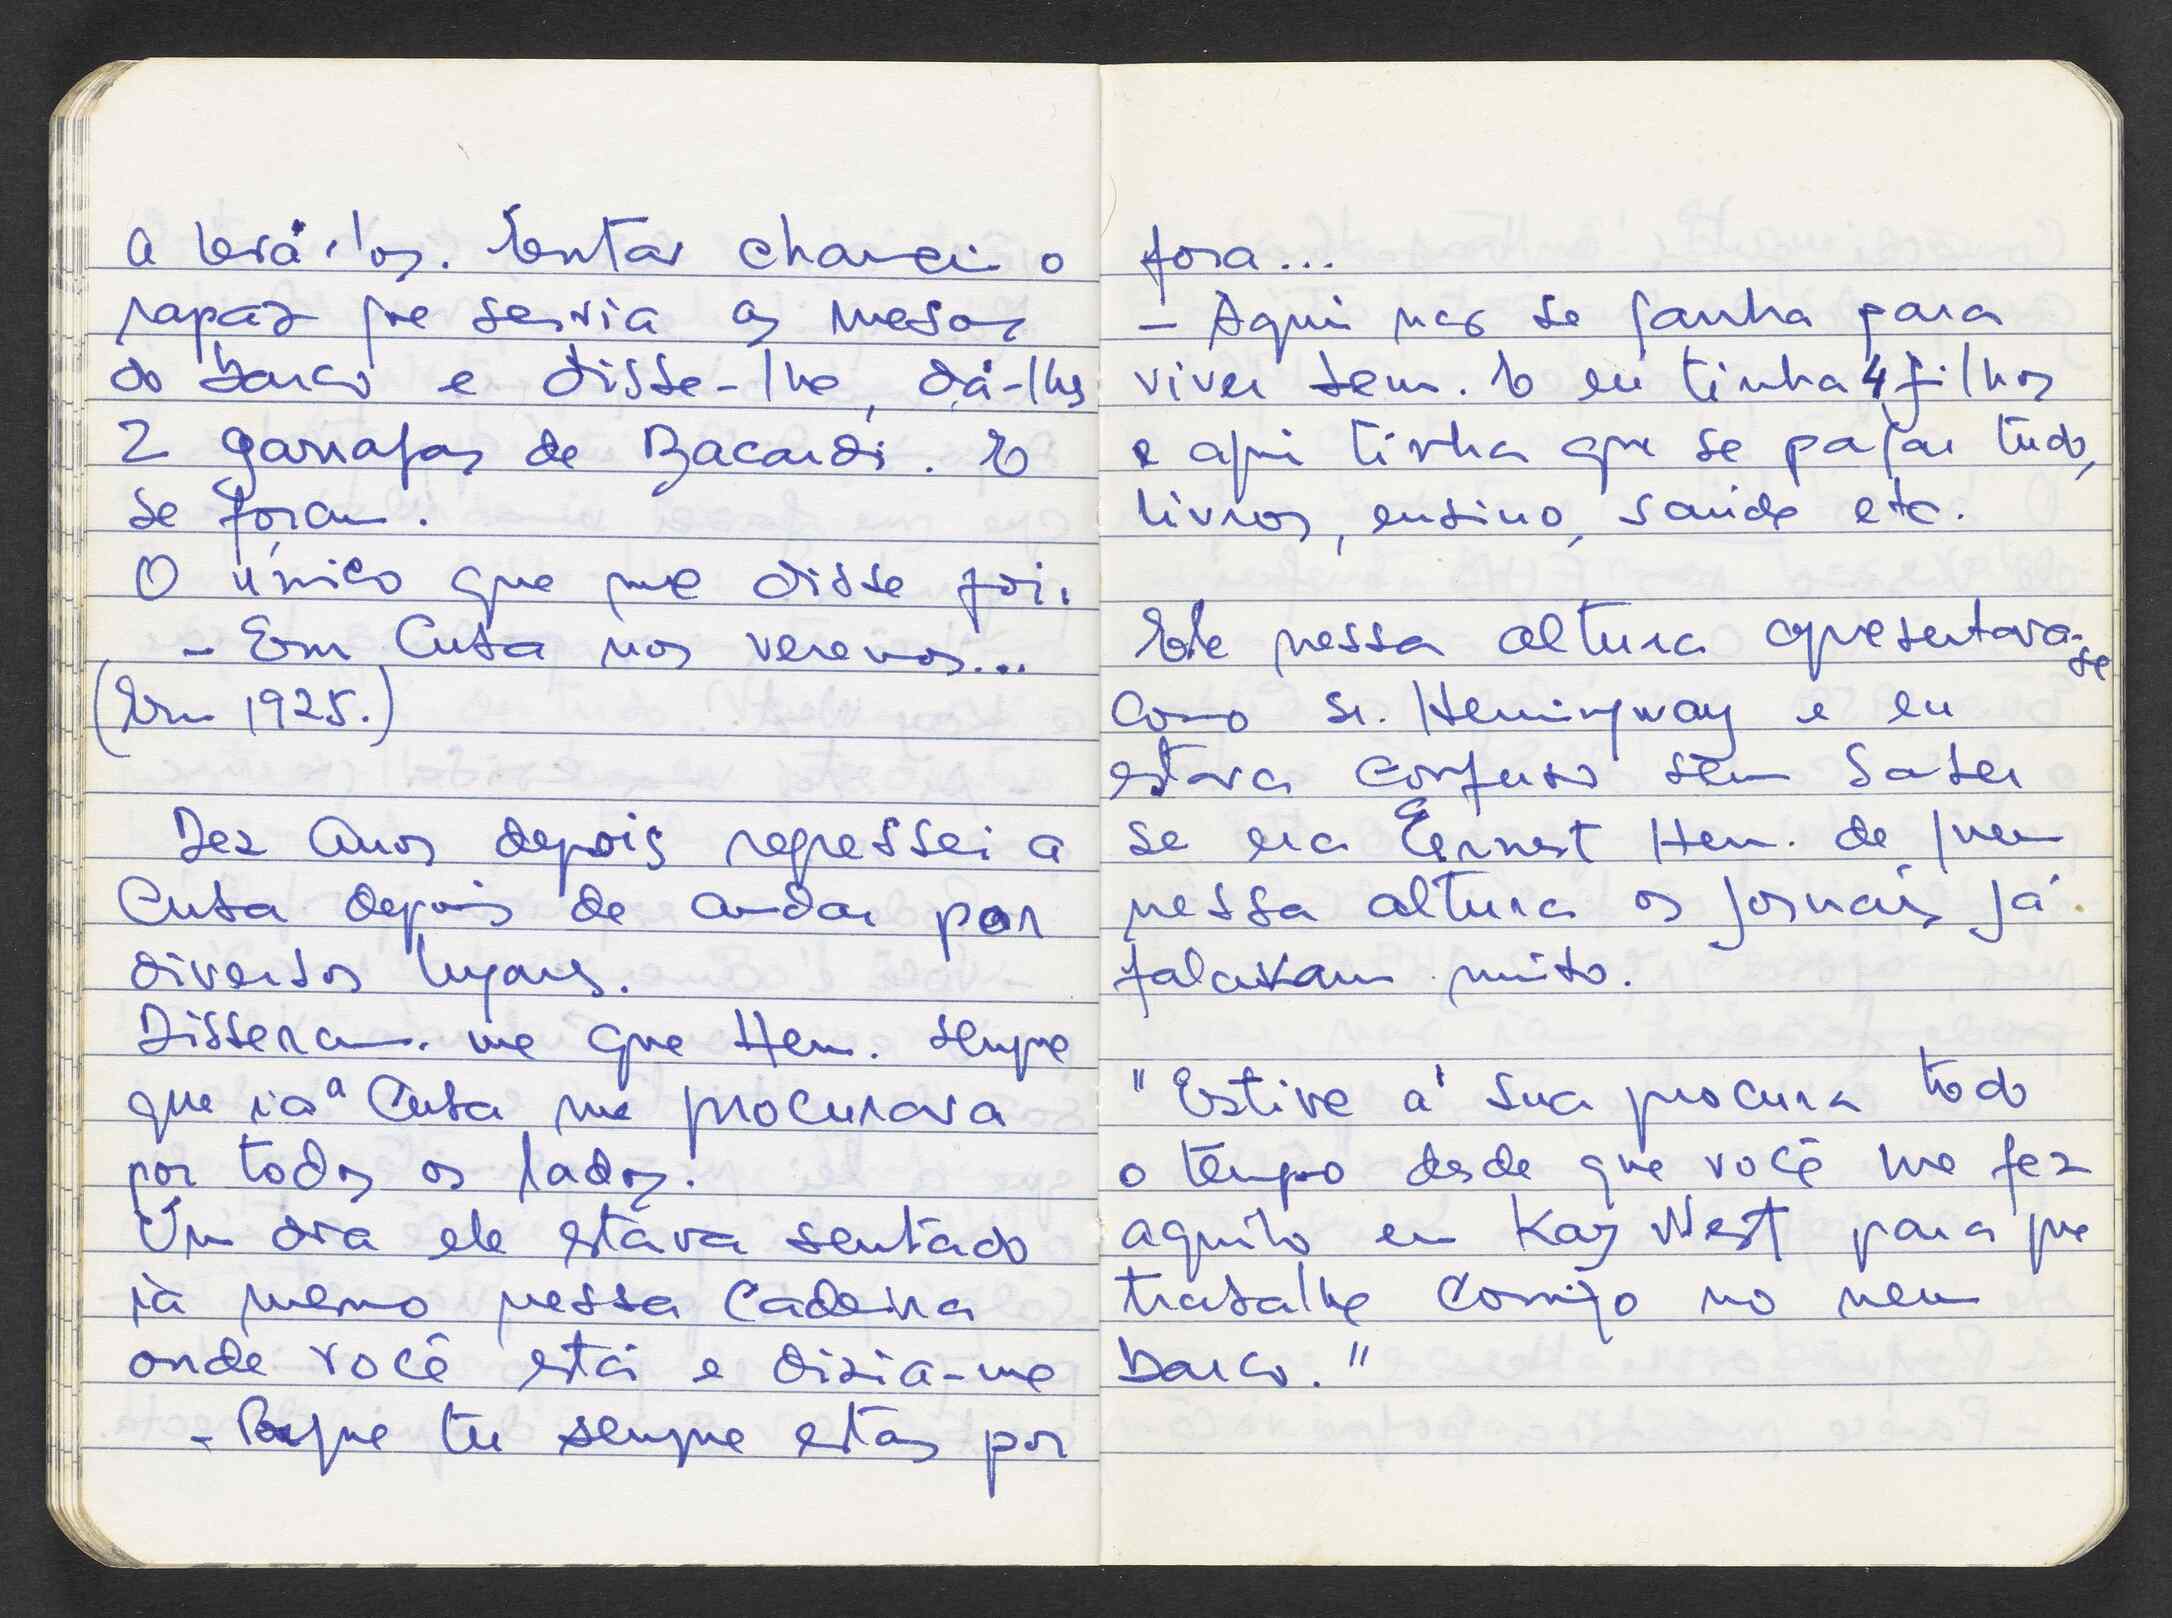 a levá-los. Então chamei o
rapaz que servia as mesas
do barco e disse-lhe, dá-lhes
2 garrafas de Bacardi. E
se foram.
O único que me disse foi,
- Em Cuba nos veremos...
(Em 1925.)
Dez anos depois regressei a
Cuba depois de andar por
diversos lugares.
Disseram-me que Hem. sempre
que ia a Cuba me procurava
por todos os lados.
Um dia ele estava sentado
ià memo nessa cadeira
onde você está e dizia-me
- Porque tu sempre estas por
fora...
- Aqui nao se ganha para
viver bem. E eu tinha 4 filhos
e aqui tinha que se pagar tudo,
livros, ensino, saúde etc.
Ele nessa altura apresentava-se
como sr. Hemingway e eu
estava confuso sem saber
se era Ernest Hem. de quem
nessa altura os jornais já
falavam muito.
"Estive à sua procura todo
o tempo desde que você me fez
aquilo em Kay West para que
trabalhe comigo no meu
barco."